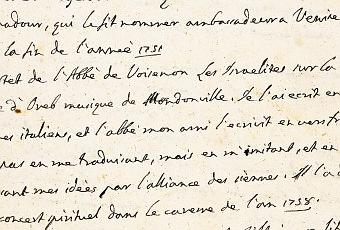 adour, qui le fit nommer ambassadeur a Venise
la fin de l'année 1758
tet de l'Abbé de Voisenon Les Israelites sur la
e d'Oreb musique de Mondonville. Je l'ai ecrit en
es italiens, et l'abbé mon ami l'ecrivit en vers fr
pas en me traduisant, mais en m'imitant, et en
ant mes idées par l'alliance des siennes. Il l'a
concert spirituel dans le careme de l'an 1758.